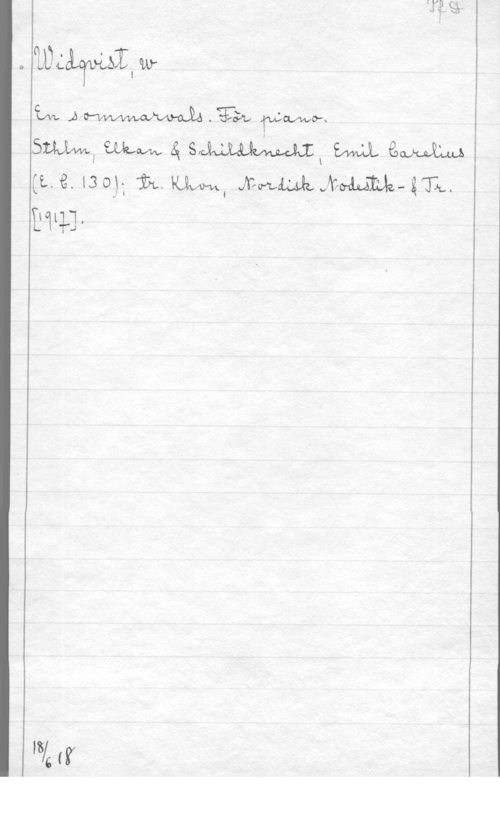 Widqvist, W
En sommarvals. För piano.
Sthlm, Elkan & Schildknecht, Emil Carelius
(E. C. 130); tr. Khvn, Nordisk Nodestik- & Tr.
[1917].
18/6 18